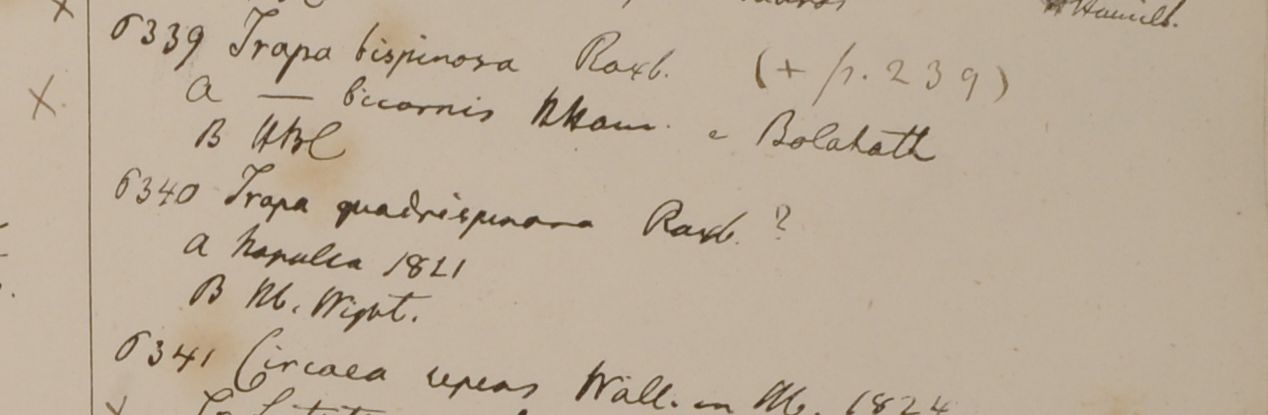 Hamilt.
6339 Trapa bispinosa Roxb. (+ p. 239)
a — bicornis HHam. e Bolahath
B HBC
6340 Trapa quadrispinosa Roxb. ?
a 1821
B Wight.
6341 Circaea repens Wall. in 1824